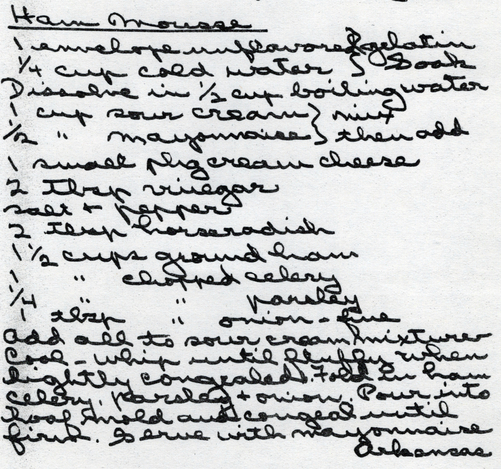 Ham Mousse
1 envelope unflavored gelatin
1/4 cup cold water } Soak
Dissolve in 1/2 cup boiling water
1 cup sour cream } mix
1/2 " mayonnaise } then add
1 small pkg cream cheese
2 Tbsp vinegar
salt + pepper
2 Tbsp horseradish
1 1/2 cups ground ham
1 " chopped celery
1/4 " " parsley
1 tbsp " onion - fine
add all to sour cream mixture
Cool - whip until fluffy when
lightly congealed. Fold in ham
celery, parsley + onion. Pour into
loaf mold and congeal until
firm. Serve with mayonnaise
Arkansas